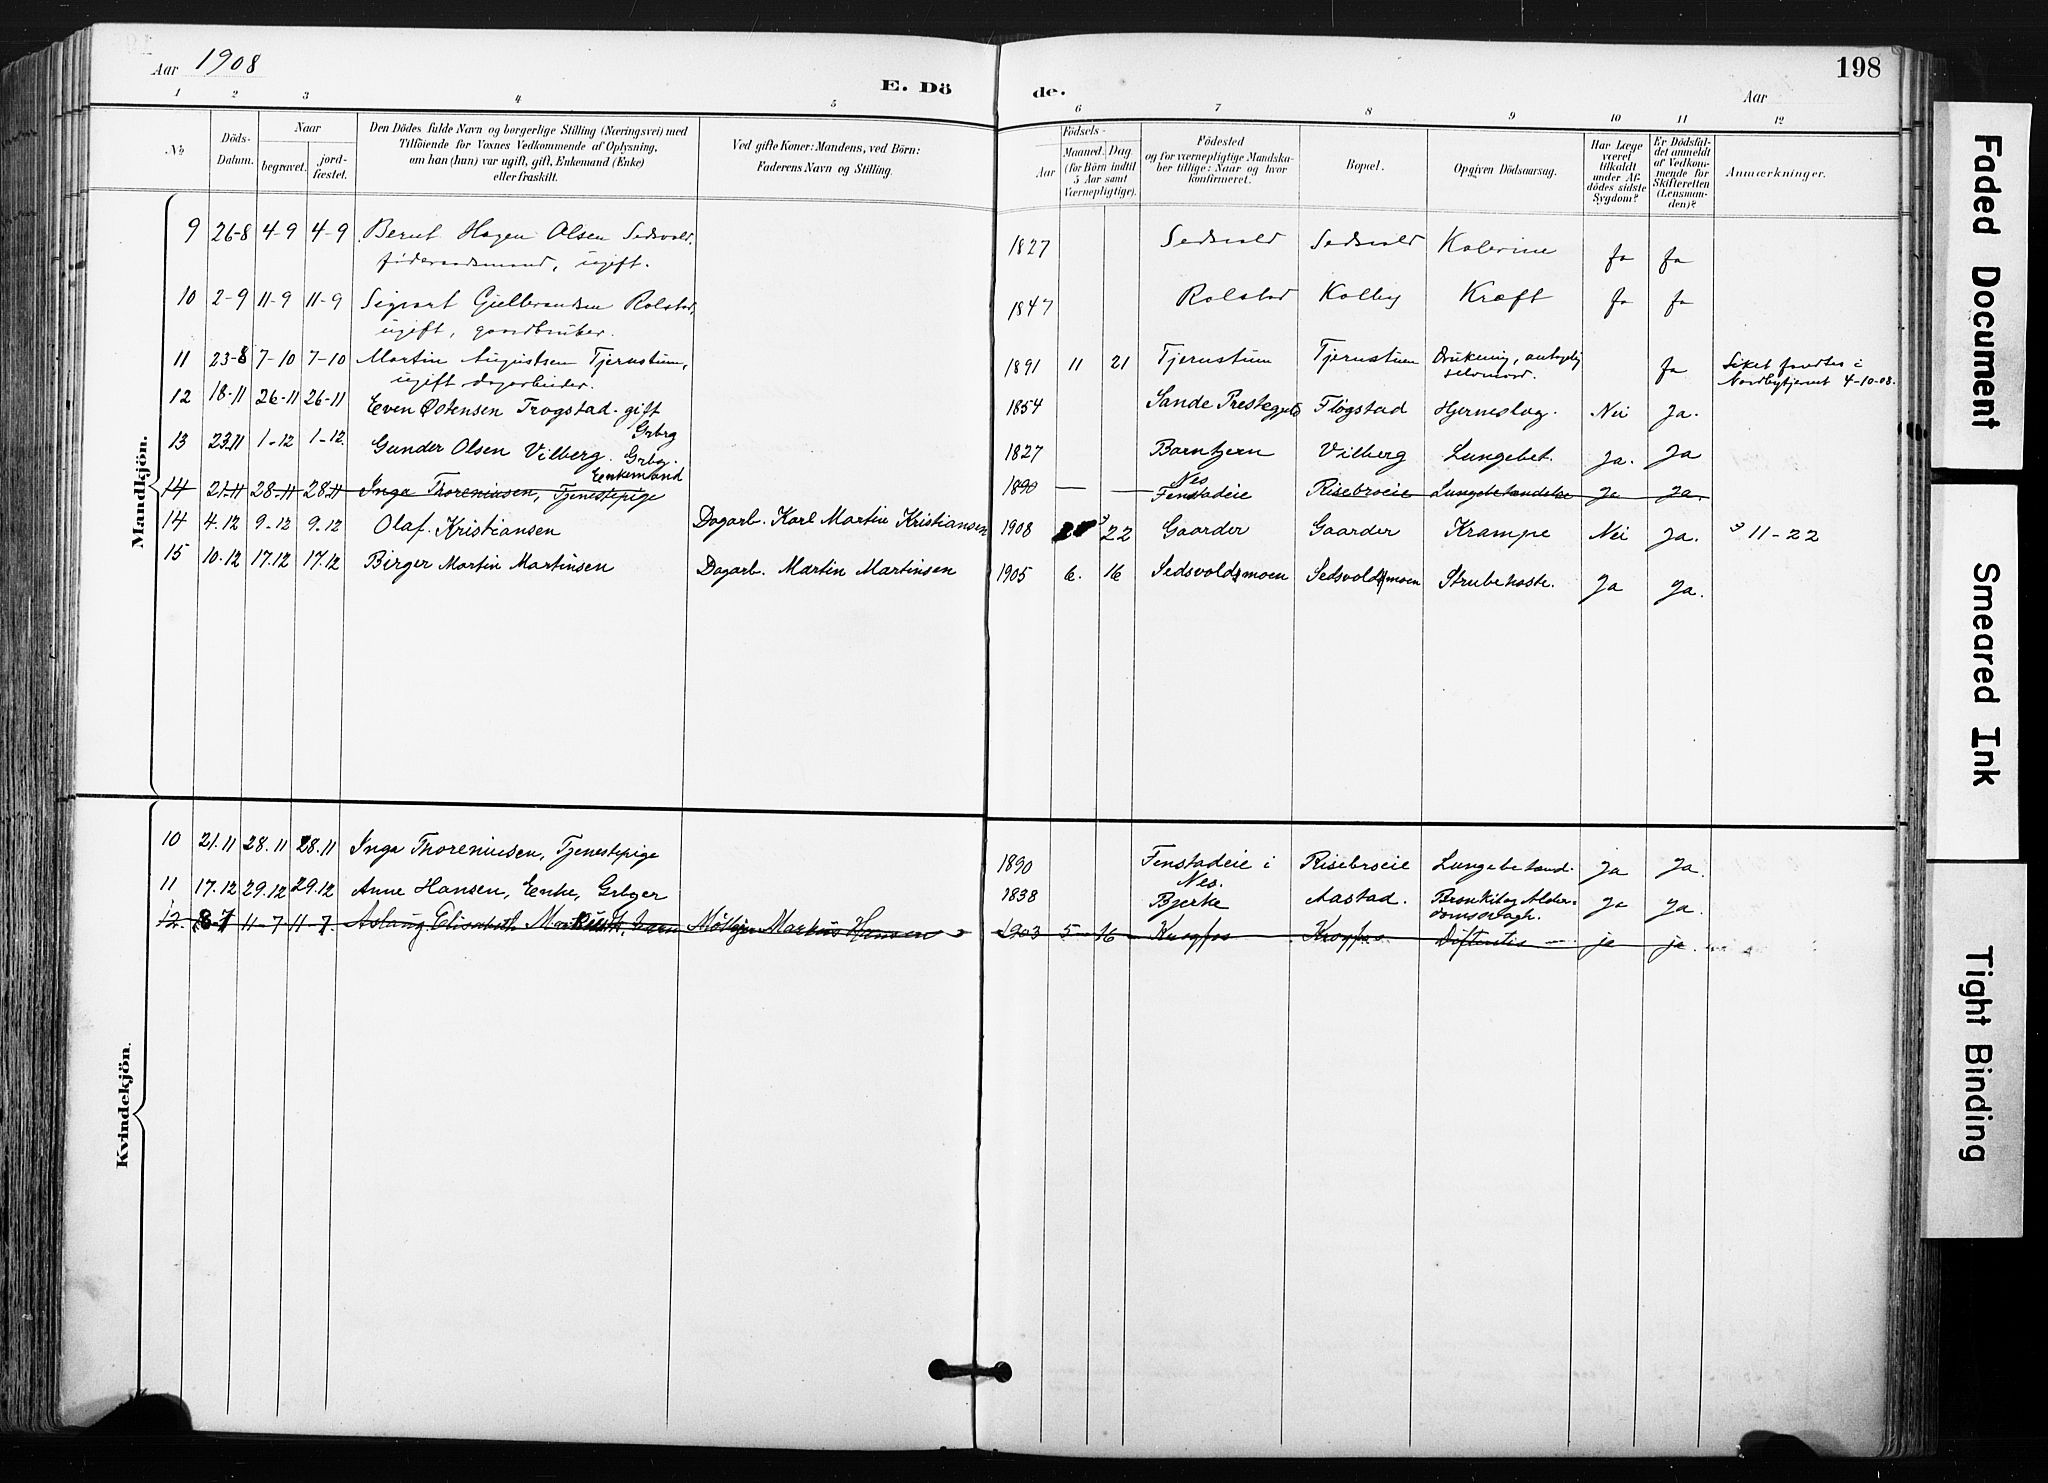 Aar 1908
E. Dö
de.
Aar
198
1 2 3 4 5 6 7 8 9 10 11 12
No
Döds-Datum.
Naar
begravet.
jord-fæstet.
Den Dödes fulde Navn og borgerlige Stilling (Næringsvei) med
Tilföiende for Voxnes Vedkommende af Oplysning,
om han (hun) var ugift, gift, Enkemand (Enke)
eller fraskilt.
Ved gifte Koner: Mandens, ved Börn:
Faderens Navn og Stilling.
Födsels-
Aar
Maaned.
Dag
(for Börn indtil
5 Aar samt
Værnepligtige).
Födested
og for værnepligtige Mandska-
ber tillige: Naar og hvor
konfirmeret.
Bopæl.
Opgiven Dödsaarsag.
Har Læge
været
tilkaldt
under Af-
dödes sidste
Sygdom?
Er Dödsfal-
det anmeldt
af Vedkom-
mende for
Skifteretten
(Lensman-
den)?
Anmærkninger.
Mandkjön.
9 26-8 4-9 4-9 Bernt Hagen Olsen Sedsvold, 1827 Sedsvold Sedsvold Kolerine ja ja
föderaadsmand, ugift.
10 2-9 11-9 11-9 Sigvart Gulbrandsen Rolstad, 1847 Rolstad Kolby Kræft ja ja
ugift, gaardbruker.
11 23-8 7-10 7-10 Martin Augustsen Tjernstum, 1891 11 21 Tjernstum Tjernstum Drukning, antagelig ja Liket fandtes i
ugift dagarbeider. selvmord. Nordbytjernet 4-10-08.
12 18-11 26-11 26-11 Even Østensen Trogstad. gift 1854 Sande Prestegjeld Fløgstad Hjerneslag. Nei Ja.
Grbrg
13 23.11 1-12 1-12. Gunder Olsen Vilberg. Grbg. 1827 Borntjern Vilberg Lungebet. Ja. Ja
Enkemand
14 21-11 28-11 28.11 Inga Thoreniusen, Tjenestepige 1890 — — Nes Fenstadeie Risebroeie Lungebetændelse Ja Ja.
14 4.12 9-12 9.12 Olaf. Kristiansen Dagarb. Karl Martin Kristiansen 1908 3 22 Gaarder Gaarder Krampe Nei Ja. 3 11-22
15 10.12 17.12 17.12 Birger Martin Martinsen Dagarb. Martin Martinsen 1905 6. 16 Sedsvoldsmoen Sedsvoldsmoen Strubehoste. Ja Ja.
Kvindekjön.
10 21.11 28.11 28.11 Inga Thoreniusen, Tjenestepige 1890 Fenstadeie i Risebroeie Lungebetænd. Ja Ja.
Nes.
11 17.12 29.12 29.12 Anne Hansen, Enke, Grbger 1838 Bjerke Aastad. Bronkit og Alder- Ja Ja.
domssvagh.
12. 8-7 11-7 11-7 Aslaug Elisabeth Markussen, barn Møllejer Markus Hansen 1903 5 16 Krogfos Krogfos Difteritis ja ja.
Faded Document
Smeared Ink
Tight Binding